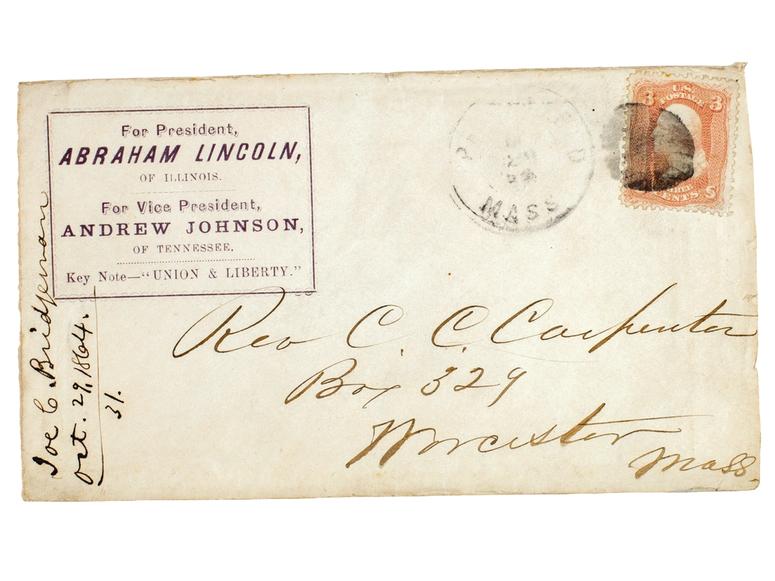 For President,
ABRAHAM LINCOLN,
OF ILLINOIS.
For Vice President,
ANDREW JOHNSON,
OF TENNESSEE.
Key Note—"UNION & LIBERTY."
MASS
U.S.
POSTAGE
3 3
THREE
CENTS
Rev C. C. Carpenter
Box 329
Worcester
Mass.
Joe C. Bridgeman
Oct. 29, 1864.
31.